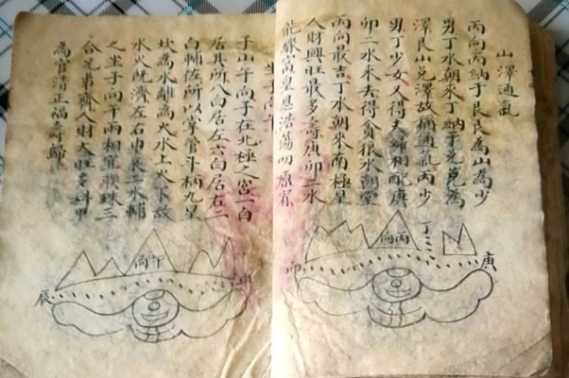 山澤通氣
丙向丙納于艮艮為山為少
男丁水朝來丁納于兑兑為
澤艮山兑澤故稱通氣丙少
男丁少女又得夫婦相配庚
卯二水來去得貪狼水朝堂
丙向最吉丁水朝來南極星
人財興旺最多壽庚卯二水
驟富皇恩浩蕩
丙向
丁
庚
卯
坐子向午
子山午向子在北極之宮一白
居其所八白居左六白居右二
白輔佐所以掌官斗柄九星
坎為水離為火水上火下故
水火既濟左右艮二水輔
之坐子向午兩相宜聯珠三
合兄弟齊人財大旺多科甲
為官清正福壽歸
午向
辰